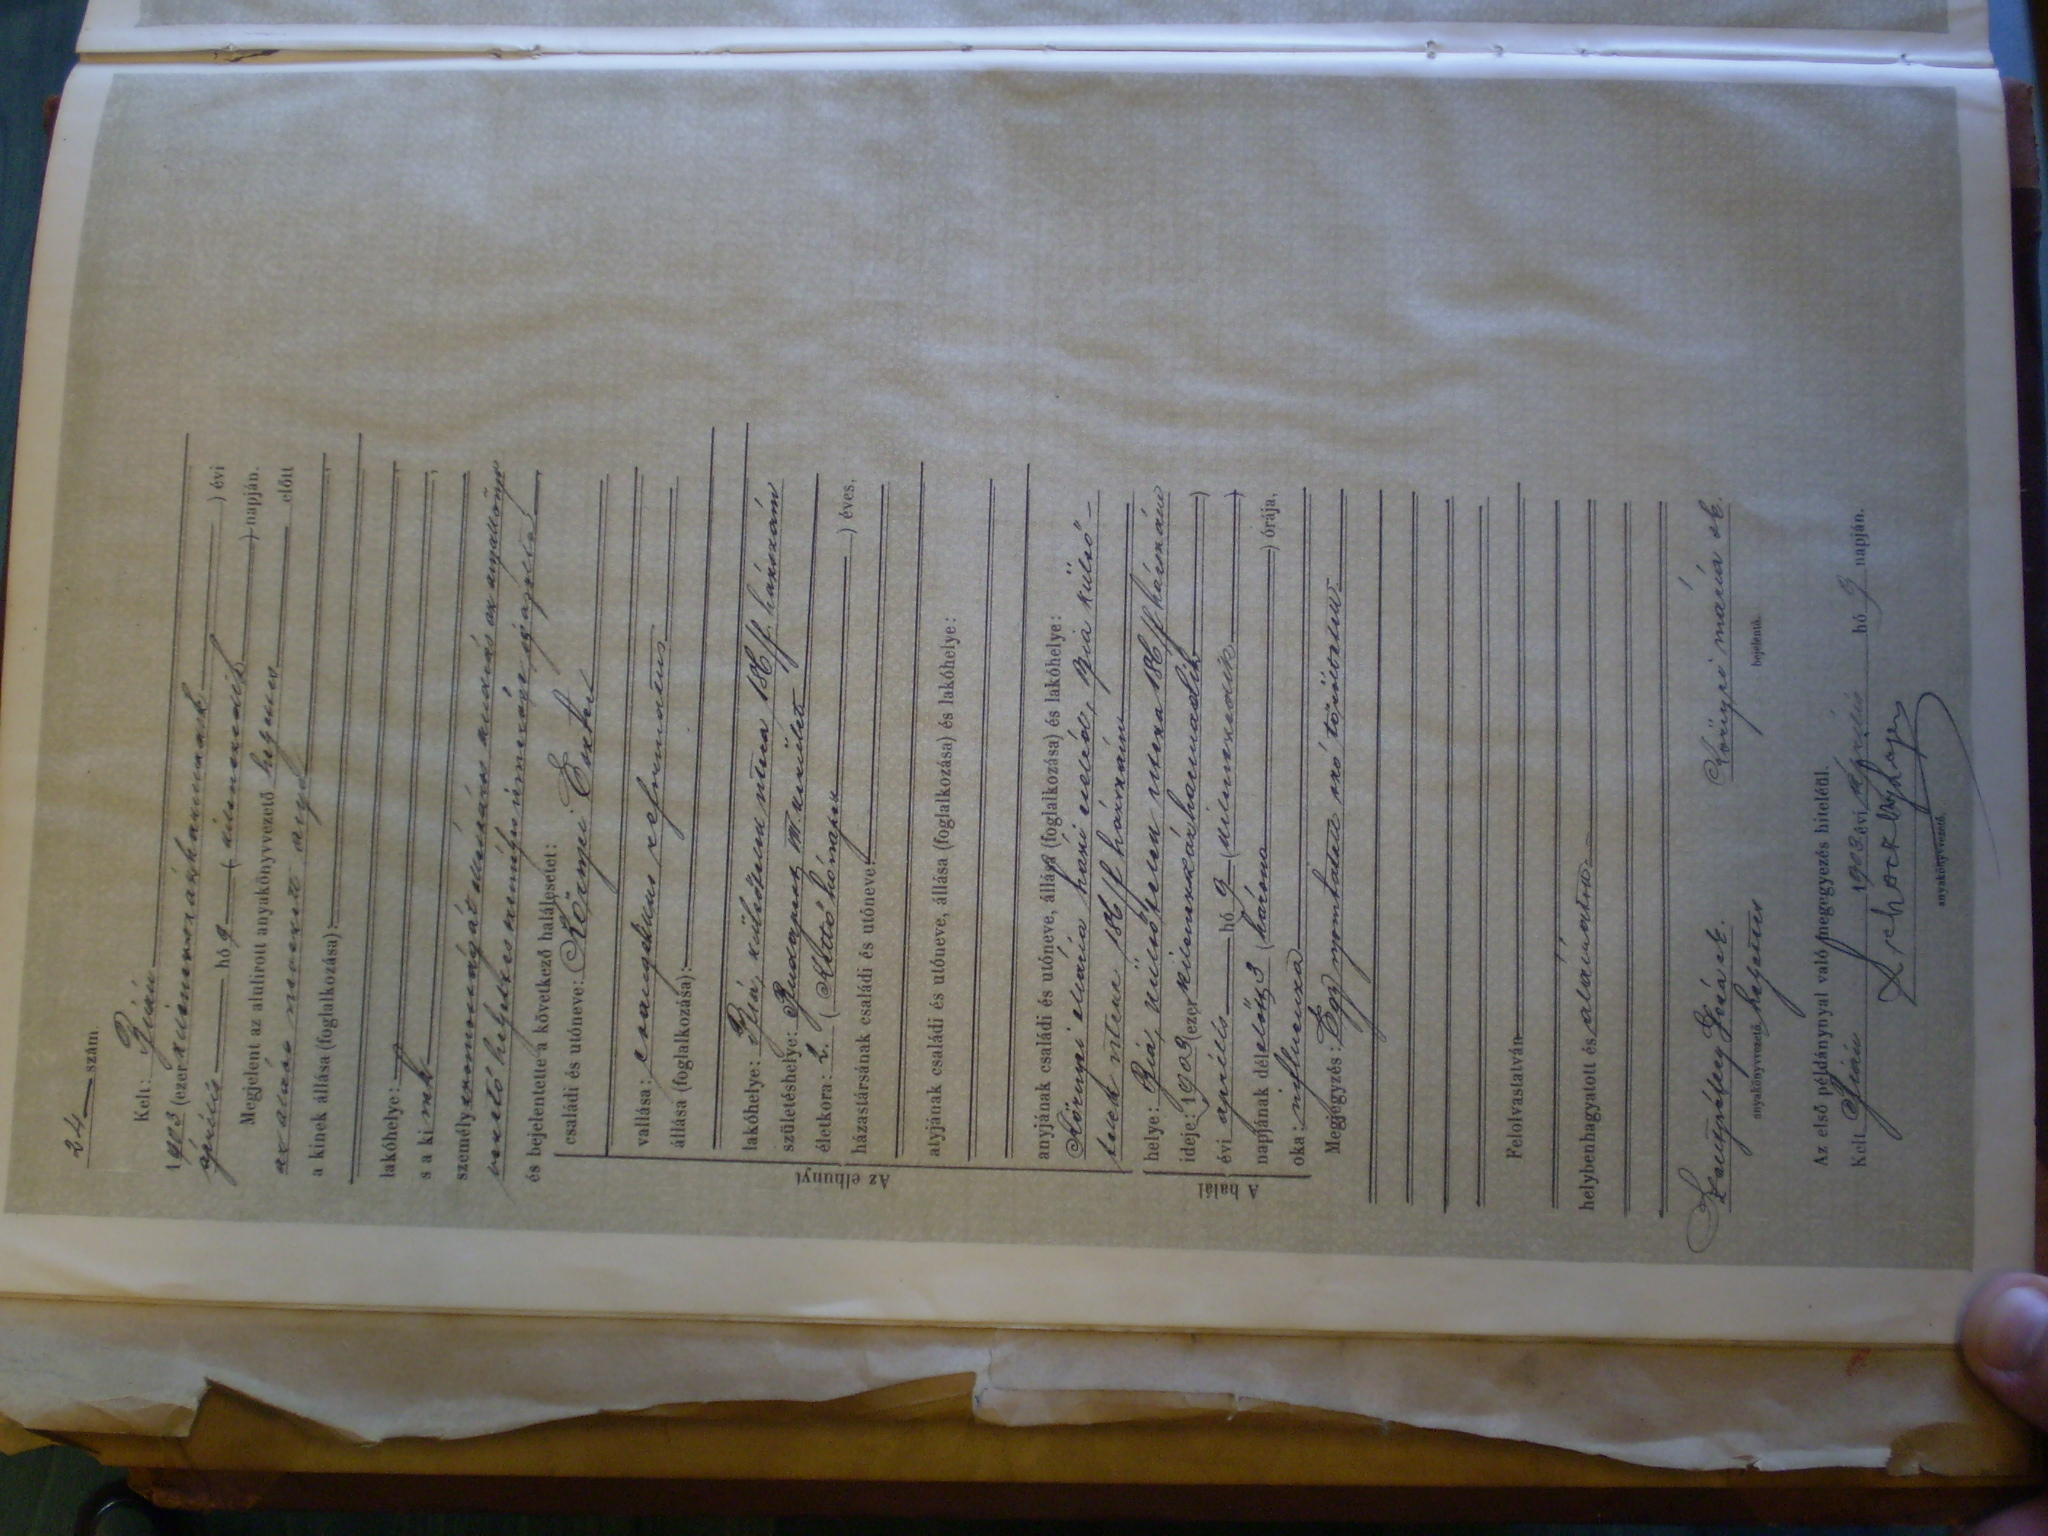 24 szám.
Kelt: Bián
1903 (ezerkilencszázháromnak) évi
április hó 9 (kilencedik) napján.
Megjelent az alulirott anyakönyvezető helyettes előtt
az alább nevezett anya
a kinek állása (foglalkozása):
lakóhelye:
s a kinek
személyazonosságát
vezető helyettes személyes ismerése igazolta
és bejelentette a következő halálesetet:
Az elhunyt
családi és utóneve: Környei Eszter
vallása: evangelikus reformatus
állása (foglalkozása):
lakóhelye: Biá, külsőtelek utca 186/f. házszám
születéshelye: Budapest
életkora: 2. (Kettő hónapos) éves,
házastársának családi és utóneve:
atyjának családi és utóneve, állása (foglalkozása) és lakóhelye:
anyjának családi és utóneve, állása (foglalkozása) és lakóhelye:
Környei Mária házi cseléd, Bia külső-
telek utca 186/f házszám
A halál
helye: Biá, külsőtelek utca 186/f házszám
ideje: 1903 (ezerkilencszázharmadik)
évi április hó 9 (kilencedik)
napjának délelőtt 3 (három) órája,
oka: influenza
Megjegyzés: Egy nyomtatott szó törölve
Felolvastatván
helybenhagyatott és aláiratott
József s.k. Környei mária sk.
anyakönyvvezető helyettes bejelentő.
Az első példánynyal való megegyezés hiteléül.
Kelt Bián 1903 évi Április hó 9 napján.
anyakönyvvezető.